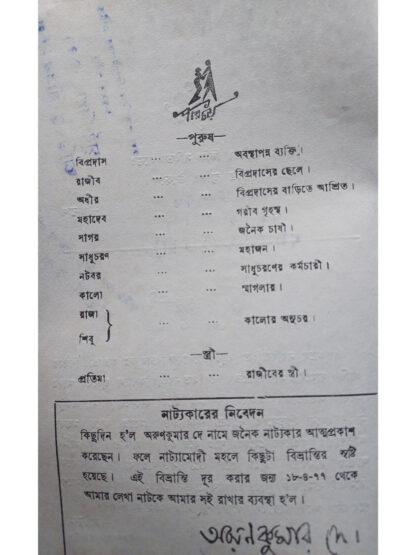 পরিচয়
—পুরুষ—
বিপ্রদাস ... ... অবস্থাপন্ন ব্যক্তি।
রাজীব ... ... বিপ্রদাসের ছেলে।
অধীর ... ... বিপ্রদাসের বাড়িতে আশ্রিত।
মহাদেব ... ... গরীব গৃহস্থ।
সাগর ... ... জনৈক চাষী।
সাধুচরণ ... ... মহাজন।
নটবর ... ... সাধুচরণের কর্মচারী।
কালো ... ... স্মাগলার।
রাজা
} ... ... কালোর অনুচর।
শিবু
—স্ত্রী—
প্রতিমা ... ... রাজীবের স্ত্রী।
নাট্যকারের নিবেদন
কিছুদিন হ'ল অরুণকুমার দে নামে জনৈক নাট্যকার আত্মপ্রকাশ
করেছেন। ফলে নাট্যামোদী মহলে কিছুটা বিভ্রান্তির সৃষ্টি
হয়েছে। এই বিভ্রান্তি দূর করার জন্য ১৮-৪-৭৭ থেকে
আমার লেখা নাটকে আমার সই রাখার ব্যবস্থা হ'ল।
অরুণকুমার দে।